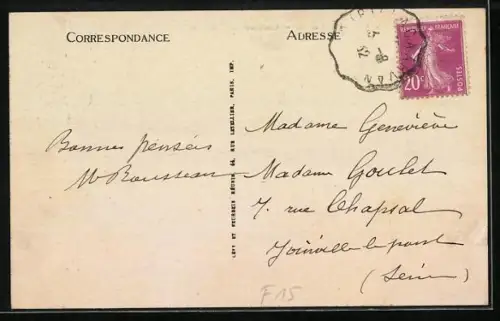 CORRESPONDANCE
Bonnes pensées
M Rousseau
LÉVY ET NEURDEIN RÉUNIS, 44, RUE LETELLIER, PARIS, IMP.
ADRESSE
Madame Geneviève
Madame Goulet
7, rue Chapsal
Joinville-le-pont
(Seine)
FRANÇAISE
20c
POSTES
F15